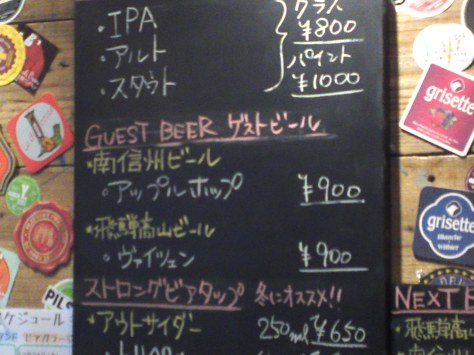 ・IPA
・アルト
・スタウト
グラス
¥800
パイント
¥1000
GUEST BEER ゲストビール
・南信州ビール
。アップルホップ ¥900
・飛騨高山ビール
。ヴァイツェン ¥900
ストロングビアタップ 冬にオススメ!!
・アウトサイダー 250ml ¥650
grisette
grisette
Blanche
NEXT
・飛騨高
ケジュール